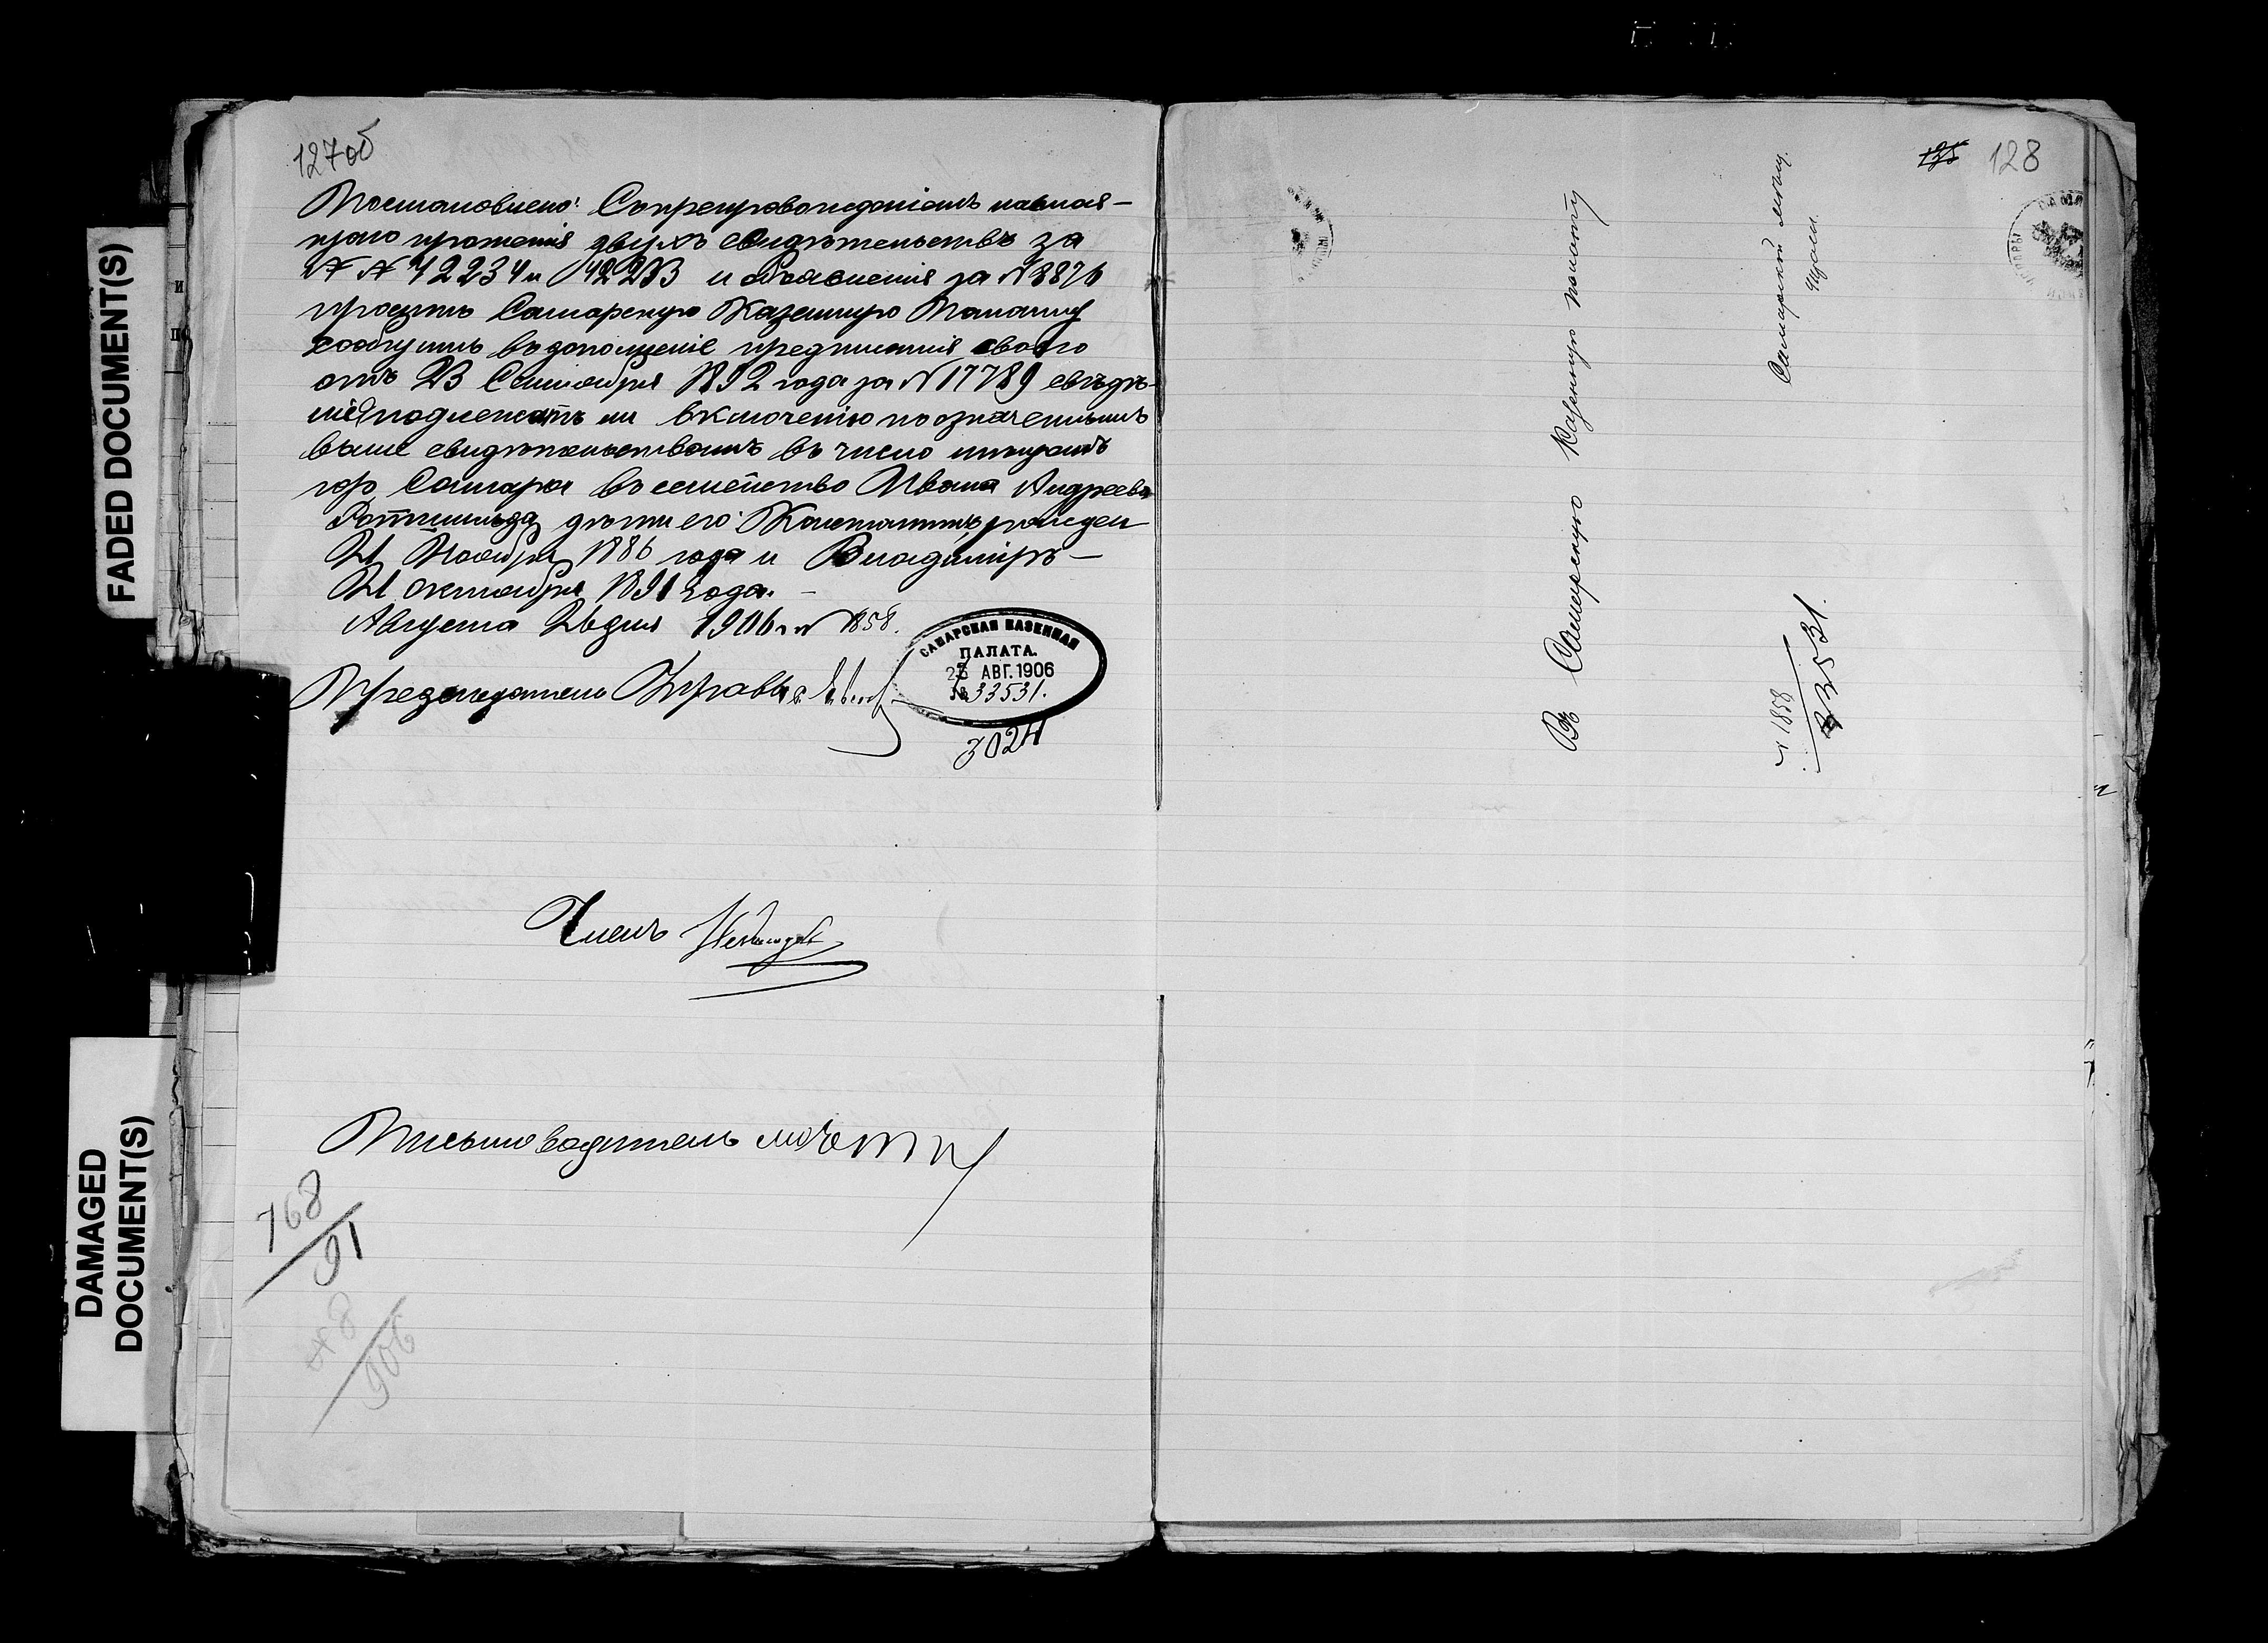 127об
Постановлено: Сопрепровожденіемъ
прошенія двухъ свидѣтельствъ за
№№ 42234 и 42233 и объявленія за № 8876
просить Самарскую Казенную Палату
сообщить въ дополненіе предписанія своего
отъ 23 Сентября 1892 года за № 17789 свѣдѣ-
ніе подлежатъ ли включенію по означеннымъ
выше свидѣтельствамъ въ число мѣщанъ
гор. Самары въ семейство Ивана Андреева
дѣти его: Константинъ, рожден
21 Ноября 1886 года и Владиміръ —
21 октября 1891 года.
Августа 26 дня 1906 г. № 1858.
Предсѣдатель Управы
САМАРСКАЯ КАЗЕННАЯ
ПАЛАТА.
АВГ. 1906
№ 33531.
3024
Членъ
Письмоводитель
768
91
906
128
Въ Самарскую Казенную палату
Самарской мѣщ.
Управы
№ 1858
33531.
FADED DOCUMENT(S)
DAMAGED
DOCUMENT(S)